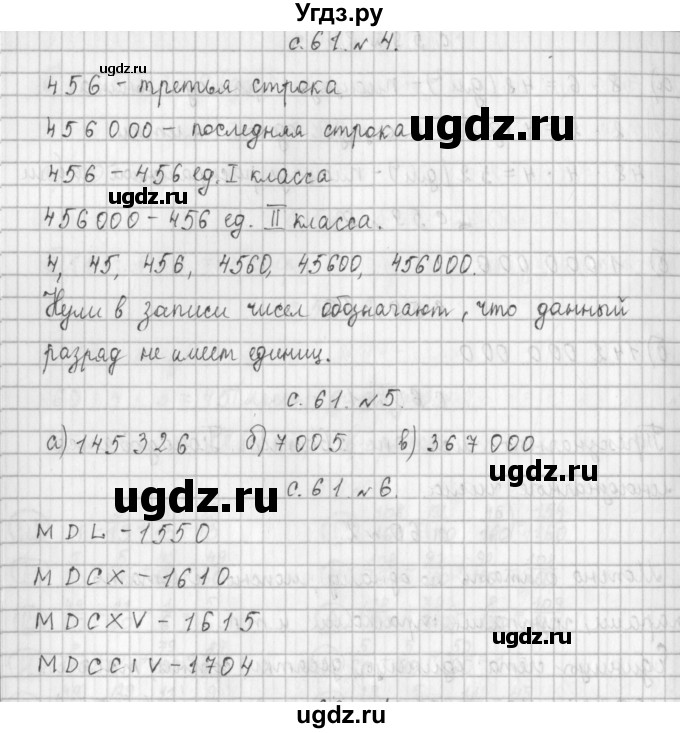 Угдз.ру
с. 61. № 4.
ugdz.ru
456 - третья строка
456000 - последняя строка
ugdz.ru
456 - 456 ед. I класса
ugdz.ru
456000 - 456 ед. II класса.
4, 45, 456, 4560, 45600, 456000.
Нули в записи чисел обозначают, что данный
разряд не имеет единиц.
с. 61. № 5.
а) 145326 б) 7005 в) 367000
ugdz.ru
с. 61 № 6.
ugdz.ru
MDL - 1550
MDCX - 1610
MDCXV - 1615
ugdz.ru
MDCCIV - 1704
ugdz.ru